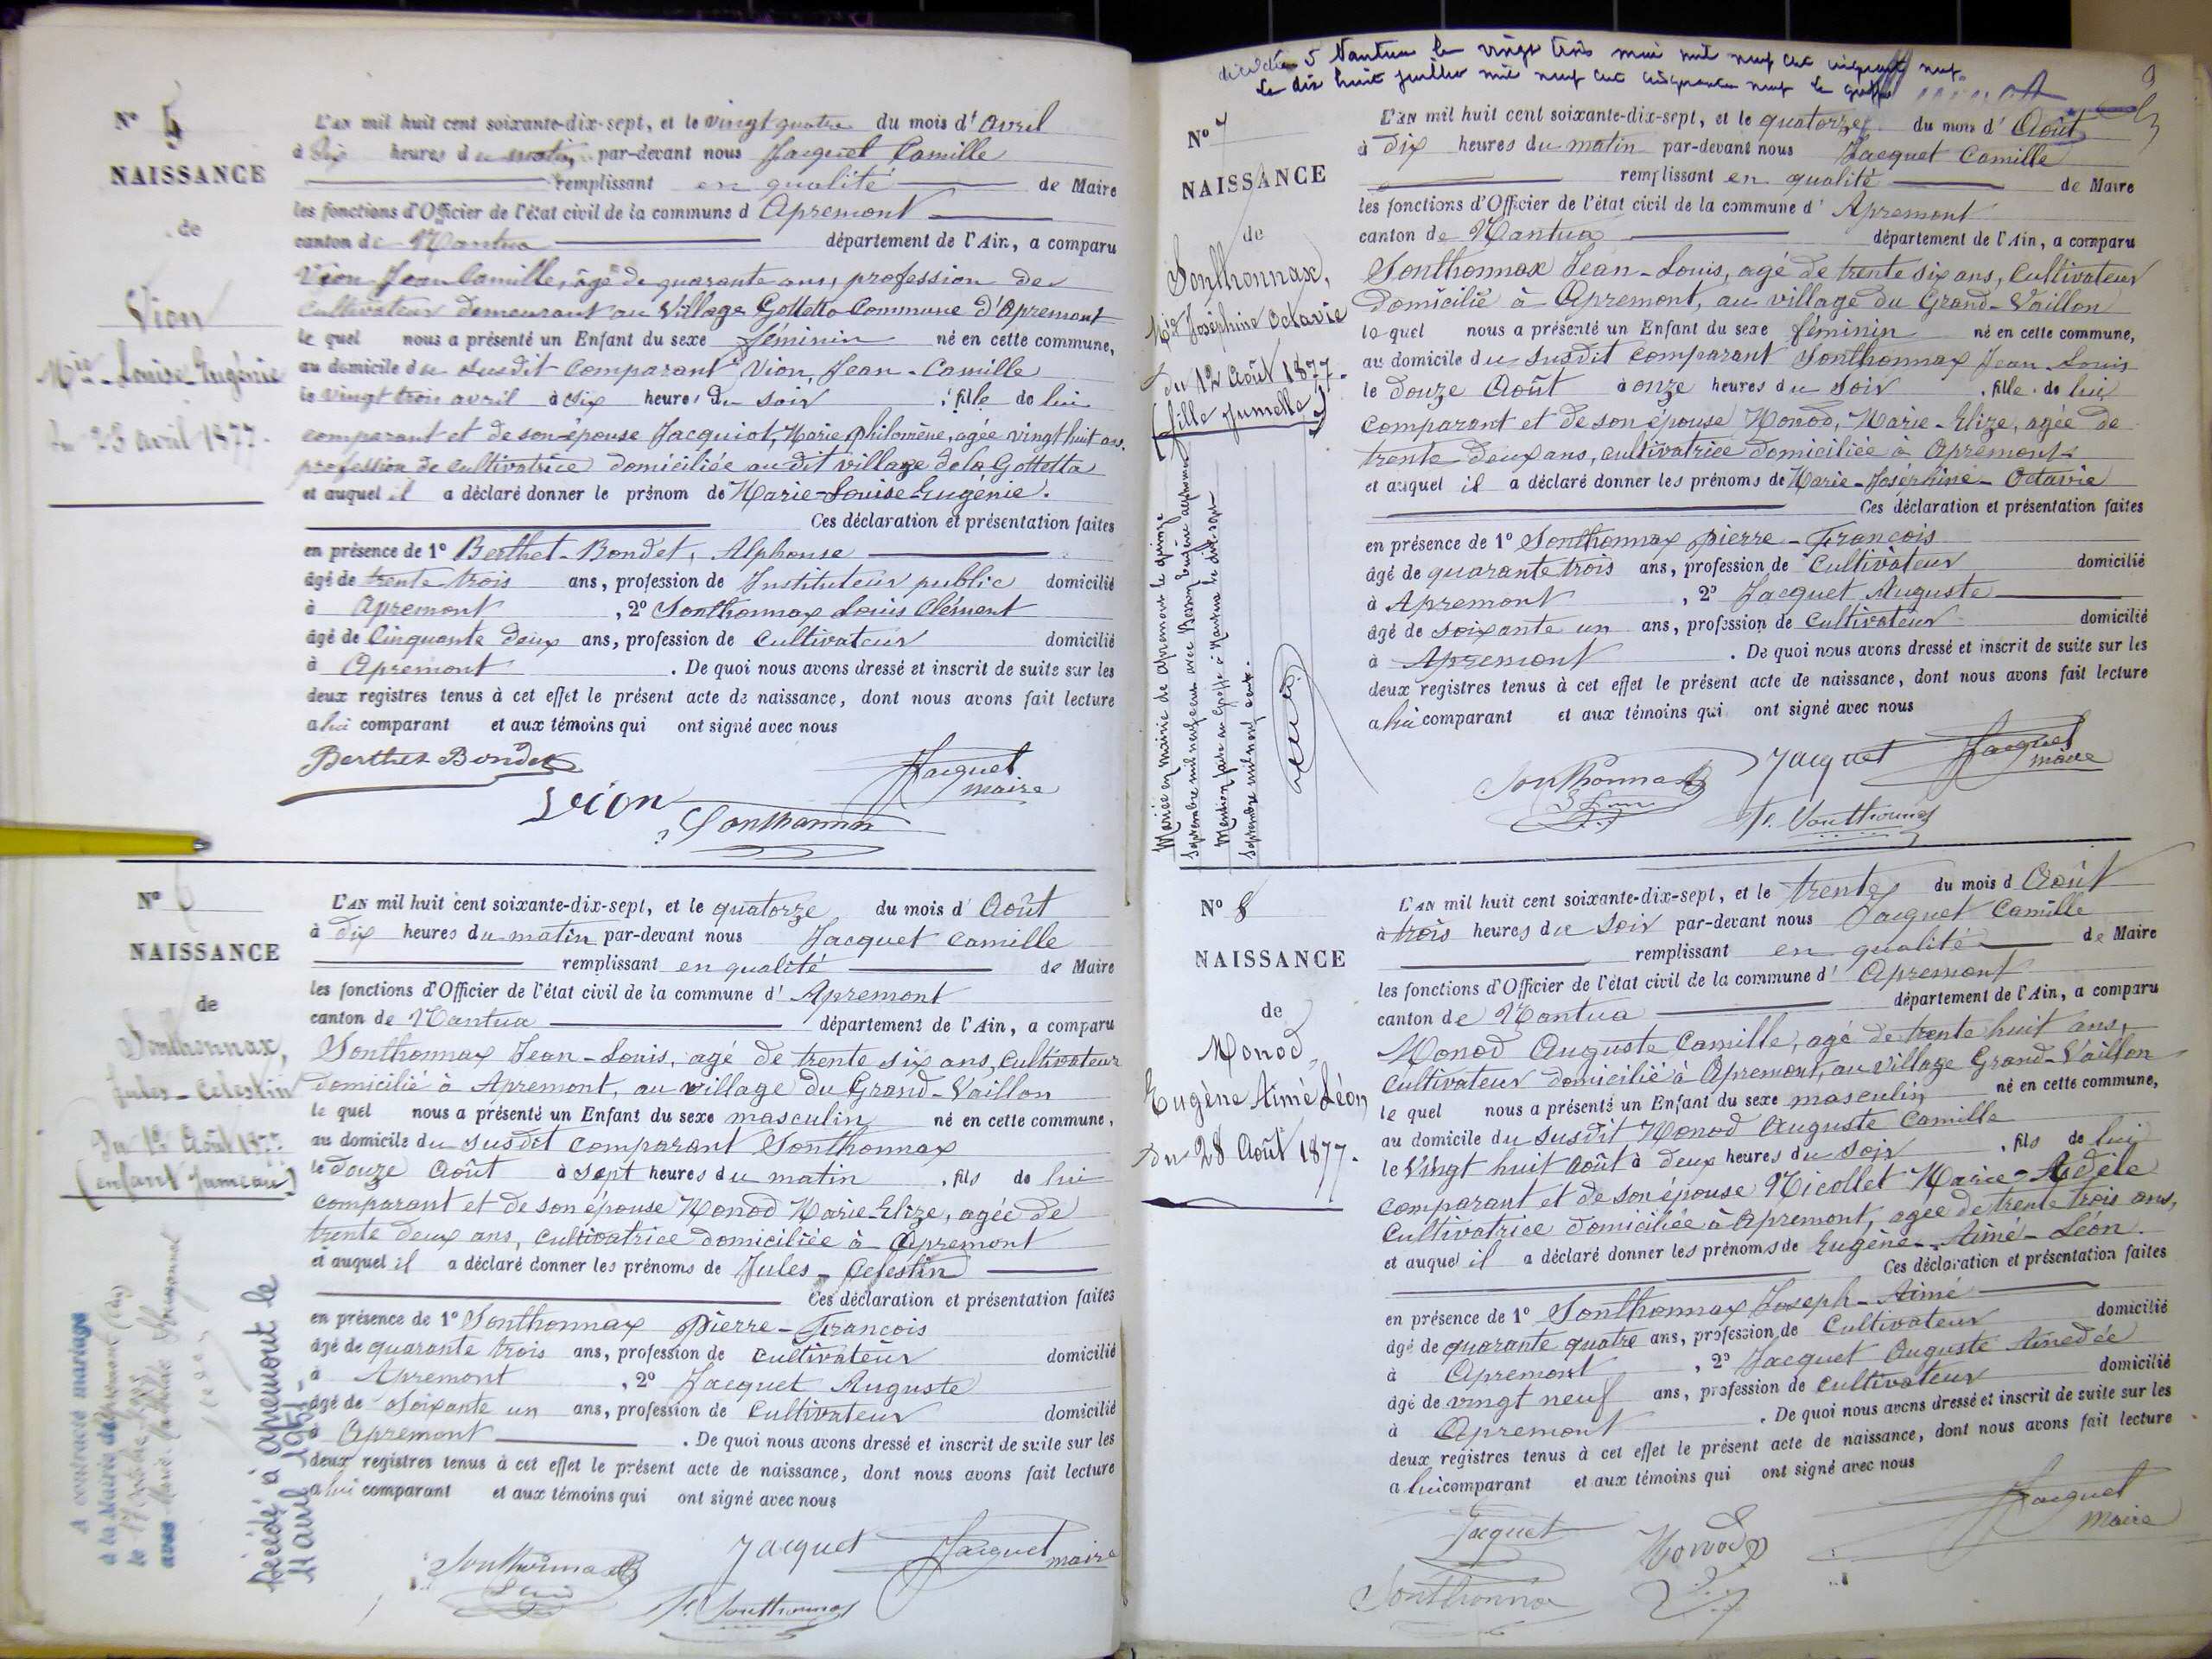 N° 5
NAISSANCE
de
Vion
Mie-Louise-Eugénie
du 23 avril 1877.
L'AN mil huit cent soixante-dix-sept, et le vingt quatre du mois d'avril
à heures du matin, par-devant nous Jacquet Camille
remplissant en qualité de Maire
les fonctions d'Officier de l'état civil de la commune d'Apremont
canton de Nantua département de l'Ain, a comparu
Vion Jean Camille, âgé de quarante ans, profession de
Cultivateur demeurant au Village Gottetta Commune d'Apremont
le quel nous a présenté un Enfant du sexe féminin né en cette commune,
au domicile du susdit comparant Vion Jean-Camille
le vingt trois avril à six heures du soir, fille de lui
comparant et de son épouse Jacquiot, Marie Philomène, agée vingt huit ans,
profession de cultivatrice domiciliée au dit village de la Gottetta
et auquel il a déclaré donner le prénom de Marie-Louise-Eugénie.
Ces déclaration et présentation faites
en présence de 1° Berthet-Bondet, Alphonse
âgé de trente trois ans, profession de Instituteur public domicilié
à Apremont, 2° Sonthonnax Louis Clément
âgé de Cinquante deux ans, profession de cultivateur domicilié
à Apremont. De quoi nous avons dressé et inscrit de suite sur les
deux registres tenus à cet effet le présent acte de naissance, dont nous avons fait lecture
a lui comparant et aux témoins qui ont signé avec nous
Berthet-Bondet
Jacquet
maire
Vion
Sonthonnax
N° 6
NAISSANCE
de
Sonthonnax,
Jules-Celestin
Du 12 Août 1877
(enfant Jumeau)
A contracté mariage
à la Mairie d'Apremont (Ain)
le 17
avec Marie
Décédé à Apremont le
11 avril 1951.
L'AN mil huit cent soixante-dix-sept, et le quatorze du mois d'Août
à dix heures du matin par-devant nous Jacquet Camille
remplissant en qualité de Maire
les fonctions d'Officier de l'état civil de la commune d'Apremont
canton de Nantua département de l'Ain, a comparu
Sonthonnax Jean-Louis, agé de trente six ans, cultivateur
domicilié à Apremont, au village du Grand-Vaillon
le quel nous a présenté un Enfant du sexe masculin né en cette commune,
au domicile du susdit comparant Sonthonnax
le douze Août à sept heures du matin, fils de lui
comparant et de son épouse Monod Marie-Elize, agée de
trente deux ans, cultivatrice domiciliée à Apremont
et auquel il a déclaré donner les prénoms de Jules-Celestin
Ces déclaration et présentation faites
en présence de 1° Sonthonnax Pierre-François
âgé de quarante trois ans, profession de cultivateur domicilié
à Apremont, 2° Jacquet Auguste
âgé de soixante un ans, profession de Cultivateur domicilié
à Apremont. De quoi nous avons dressé et inscrit de suite sur les
deux registres tenus à cet effet le présent acte de naissance, dont nous avons fait lecture
a lui comparant et aux témoins qui ont signé avec nous
Sonthonnax
Jacquet
Jacquet
maire
F. Sonthonnax
Nantua le vingt trois mai mil neuf cent cinquante neuf.
Le dix huit juillet mil neuf cent cinquante neuf le greffier
N° 7
NAISSANCE
de
Sonthonnax,
Mie Joséphine Octavie
du 12 Août 1877.
(fille Jumelle)
Mariée en mairie de Apremont le quinze
septembre mil neuf cent avec Besson Eugène
Mention faite au Greffe à Nantua le dix sept
septembre mil neuf cent.
L'AN mil huit cent soixante-dix-sept, et le quatorze du mois d'Août
à dix heures du matin par-devant nous Jacquet Camille
remplissant en qualité de Maire
les fonctions d'Officier de l'état civil de la commune d'Apremont
canton de Nantua département de l'Ain, a comparu
Sonthonnax Jean-Louis, agé de trente six ans, Cultivateur
Domicilié à Apremont, au village du Grand-Vaillon
le quel nous a présenté un Enfant du sexe féminin né en cette commune,
au domicile du susdit comparant Sonthonnax Jean Louis
le douze Août à onze heures du soir, fille de lui
comparant et de son épouse Monod, Marie-Elize, agée de
trente deux ans, cultivatrice domiciliée à Apremont
et auquel il a déclaré donner les prénoms de Marie-Joséphine-Octavie
Ces déclaration et présentation faites
en présence de 1° Sonthonnax Pierre-François
âgé de quarante trois ans, profession de Cultivateur domicilié
à Apremont, 2° Jacquet Auguste
âgé de soixante un ans, profession de Cultivateur domicilié
à Apremont. De quoi nous avons dressé et inscrit de suite sur les
deux registres tenus à cet effet le présent acte de naissance, dont nous avons fait lecture
a lui comparant et aux témoins qui ont signé avec nous
Sonthonnax
Jacquet
Jacquet
maire
F. Sonthonnax
N° 8
NAISSANCE
de
Monod,
Eugène Aimé Léon
Du 28 Août 1877.
L'AN mil huit cent soixante-dix-sept, et le trente du mois d Août
à trois heures du soir par-devant nous Jacquet Camille
remplissant en qualité de Maire
les fonctions d'Officier de l'état civil de la commune d'Apremont
canton de Nantua département de l'Ain, a comparu
Monod Auguste Camille, agé de trente huit ans,
cultivateur domicilié à Apremont, au village Grand-Vaillon
le quel nous a présenté un Enfant du sexe masculin né en cette commune,
au domicile du susdit Monod Auguste Camille
le vingt huit Août à deux heures du soir, fils de lui
comparant et de son épouse Nicollet Marie-Adèle
cultivatrice domiciliée à Apremont, agee de trente trois ans,
et auquel il a déclaré donner les prénoms de Eugène-Aimé-Léon.
Ces déclaration et présentation faites
en présence de 1° Sonthonnax Joseph-Aimé
âgé de quarante quatre ans, profession de Cultivateur domicilié
à Apremont, 2° Jacquet Auguste Amedée
âgé de vingt neuf ans, profession de cultivateur domicilié
à Apremont. De quoi nous avons dressé et inscrit de suite sur les
deux registres tenus à cet effet le présent acte de naissance, dont nous avons fait lecture
a lui comparant et aux témoins qui ont signé avec nous
Jacquet
Monod
Jacquet
Maire
Sonthonnax